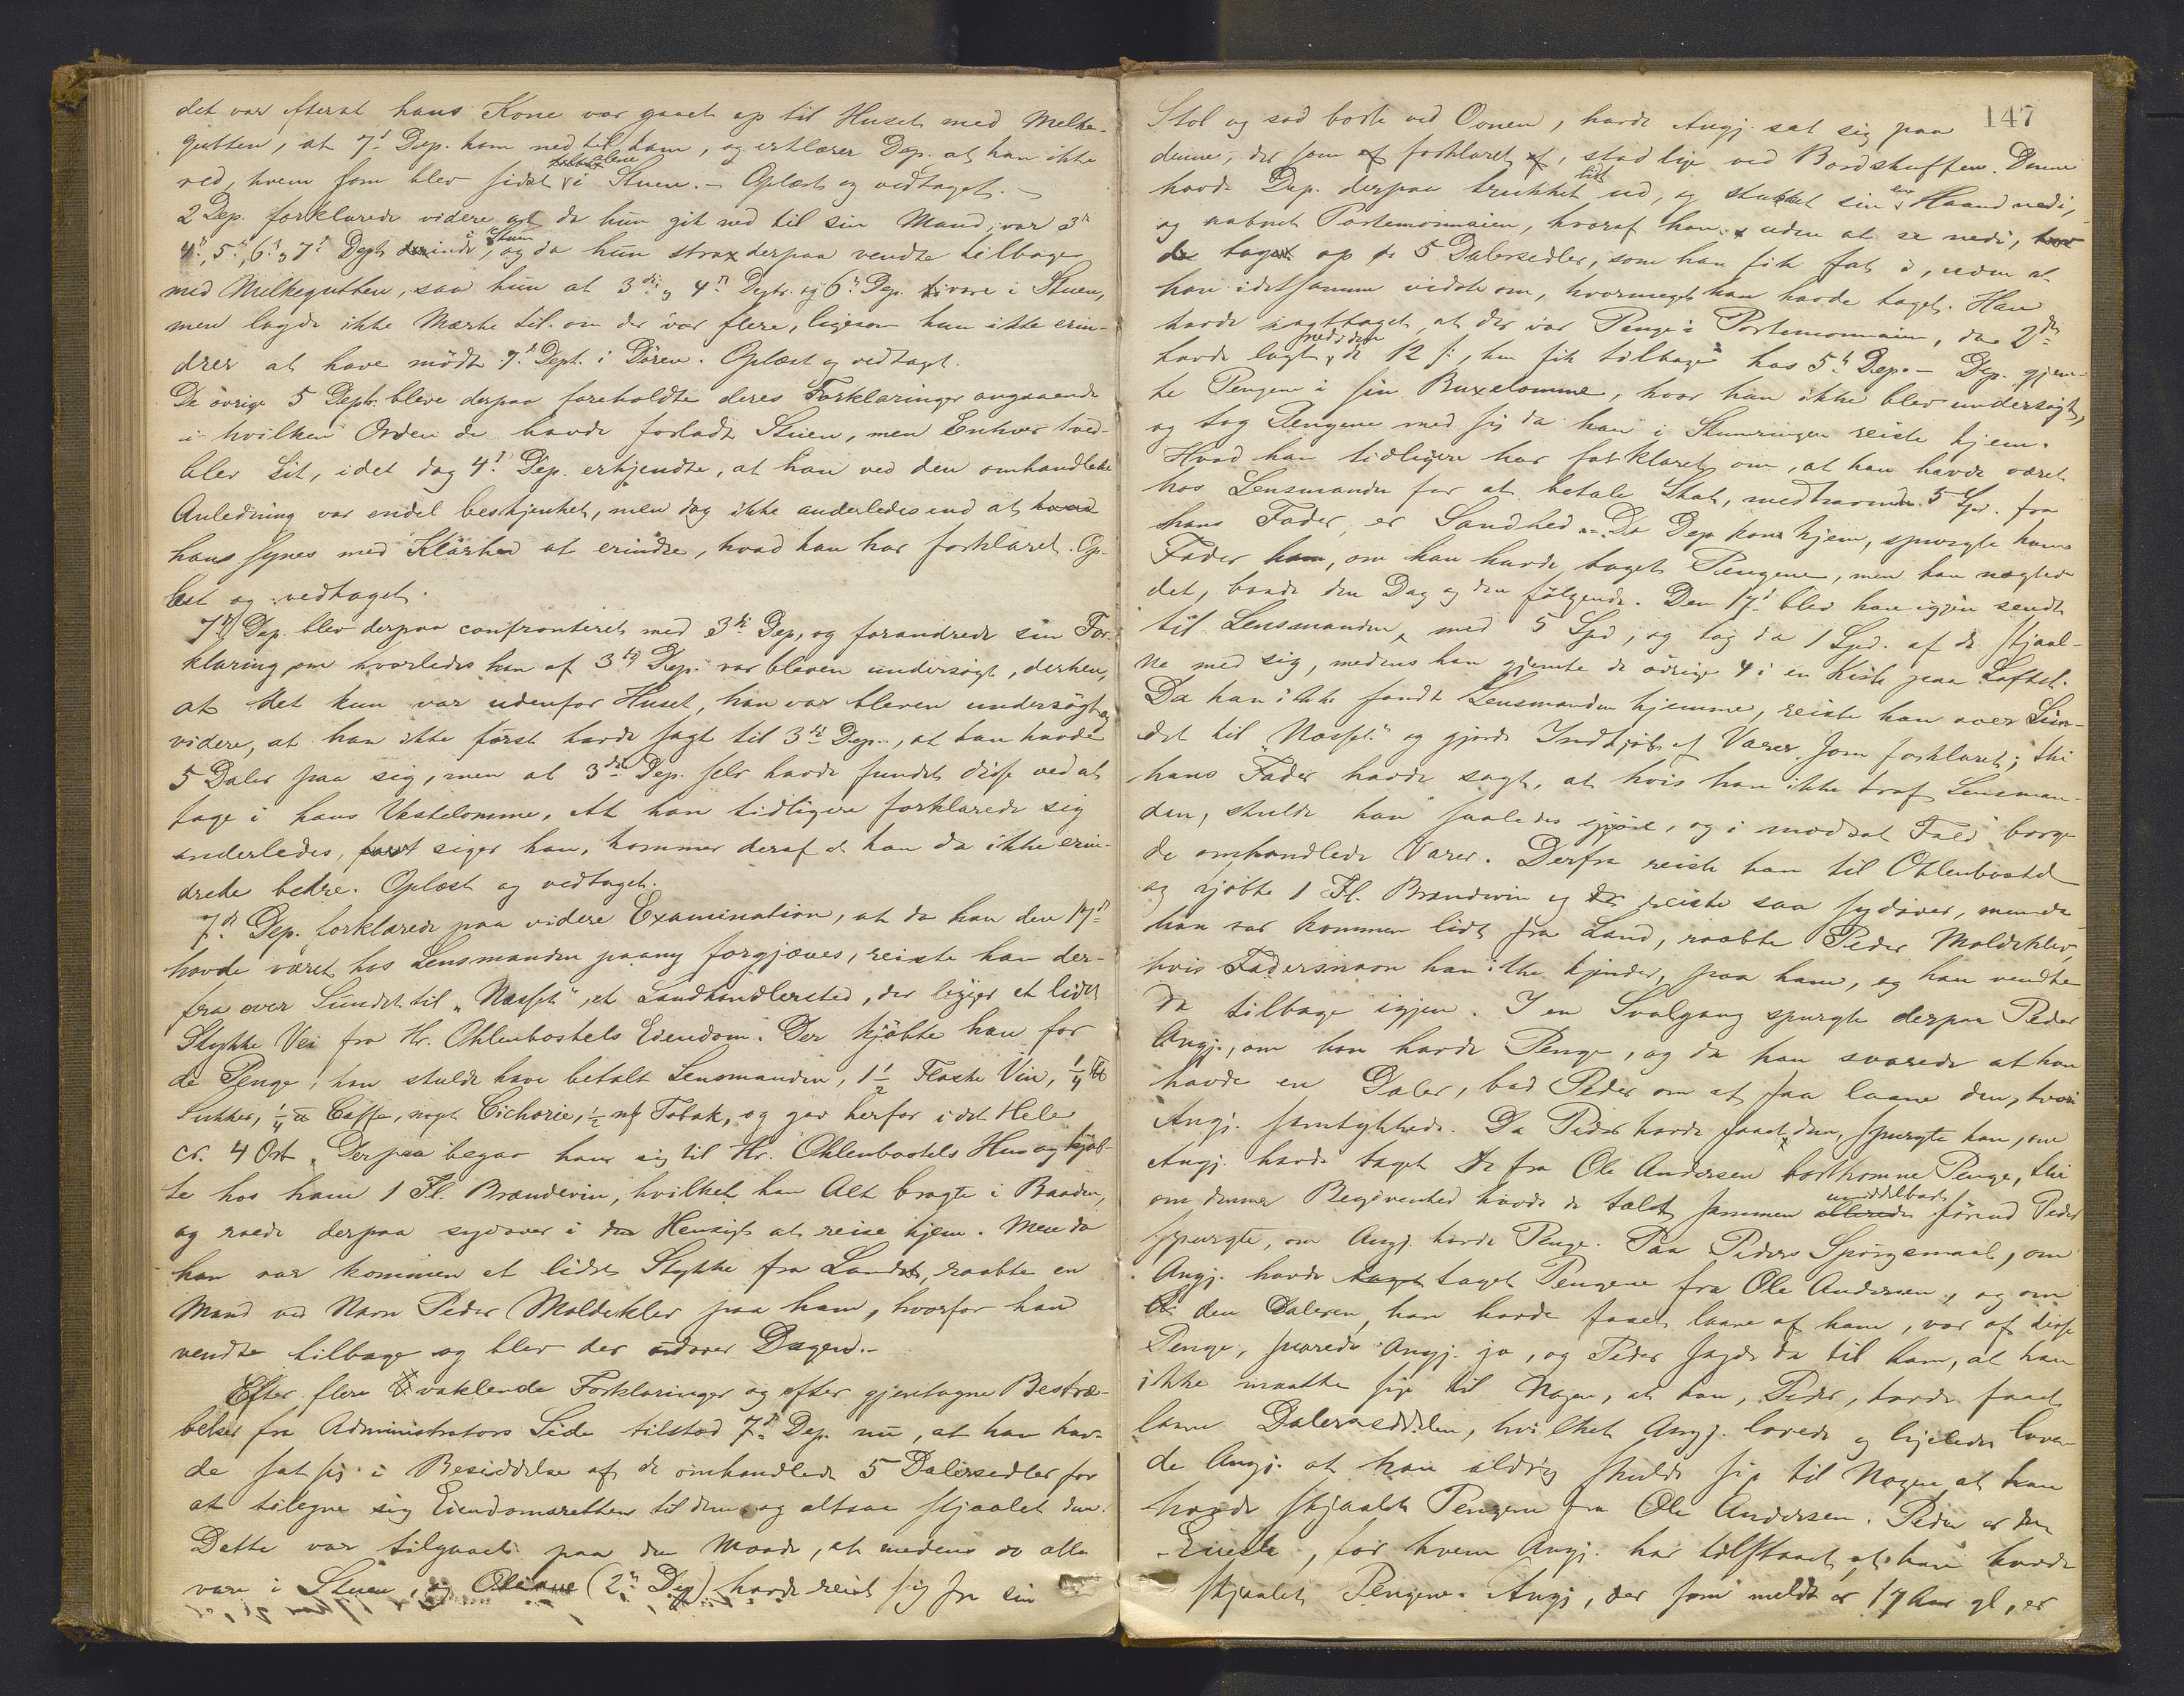 det var efterat hans Kone var gaaet op til Huset med Melke-
gutten, at 7d Dep. kom ned til ham, og erklærer Dep. at han ikke
ved, hvem som blev sidst alene i Stuen. - Oplæst og vedtaget. -
2 Dep. forklarede videre at da hun gik ned til sin Mand, var 3di
4d, 5t, 6t og 7d Dept. derinde i Stuen, og da hun strax derpaa vendte tilbage
med Melkegutten, saa hun at 3di og 4d Deptr. og 6t Dep. vare i Stuen,
men lagde ikke Mærke til om der var flere, ligesom hun ikke erin-
drer at have mødt 7d Dept. i Døren. Oplæst og vedtaget.
De øvrige 5 Deptr. bleve derpaa foreholdte deres Forklaringer angaaende
i hvilken Orden de havde forladt Stuen, men Enhver ved-
blev sit, idet dog 4d Dep. erkjendte, at han ved den omhandlede
Anledning var endel beskjenket, men dog ikke anderledes end at
han synes med Klarhed at erindre, hvad han har forklaret. Op-
læst og vedtaget.
7d Dep. blev derpaa confronteret med 3di Dep, og forandrede sin For-
klaring om hvorledes han af 3di Dep. var bleven undersøgt, derhen,
at det kun var udenfor Huset, han var bleven undersøgt og
videre, at han ikke først havde sagt til 3di Dep., at han havde
5 Daler paa sig, men at 3di Dep. selv havde fundet disse ved at
tage i hans Vestelomme. At han tidligere forklarede sig
anderledes, siger han, kommer deraf at han da ikke erin-
drede bedre. Oplæst og vedtaget.
7d Dep. forklarede paa videre Examination, at da han den 17d
havde været hos Lensmanden paany forgjæves, reiste han der-
fra over Sundet til "Næsset", et Landhandlersted, der ligger et lidet
Stykke Vei fra Hr. Ohlenbostels Eiendom. Der kjøbte han for
de Penge, han skulde have betalt Lensmanden, 1½ Flaske Vin, ¼ ℔
Sukker, ¼ ℔ Caffe, noget Cichorie, ½ Tobak, og gav herfor i det Hele
ca. 4 Ort. Derpaa begav han sig til Hr. Ohlenbostels Hus og kjøb-
te hos ham 1 Fl. Brændevin, hvilket han Alt bragte i Baaden,
og roede derpaa sydover i den Hensigt at reise hjem. Men da
han var kommen et lidet Stykke fra Landet, raabte en
Mand ved Navn Peder Moldeklev paa ham, hvorfor han
vendte tilbage og blev der udover Dagen. -
Efter flere vaklende Forklaringer og efter gjentagne Bestræ-
belser fra Administrators Side tilstod 7d Dep. nu, at han hav-
de sat sig i Besiddelse af de omhandlede 5 Dalersedler for
at tilegne sig Eiendomsretten til dem og altsaa stjaalet dem.
Dette var tilgaaet paa den Maade, at medens de alle
vare i Stuen, og Oliane (2n Dep) havde reist sig fra sin
147
Stol og sad borte ved Ovnen, havde Angj. sat sig paa
denne, der som forklaret, stod lige ved Bordskuffen. Denne
havde Dep. derpaa trukket lidt ud, og stukket sin ene Haand nedi,
og aabnet Portemonnaien, hvoraf han, uden at se nedi,
tog op de 5 Dalersedler, som han fik fat i, uden at
han idetsamme vidste om, hvormeget han havde taget. Han
havde iagttaget, at der var Penge i Portemonnaien, da 2den
havde lagt nedi den de 12 s:, hun fik tilbage hos 5t Dep. - Dep. gjem-
te Pengene i sin Buxelomme, hvor han ikke blev undersøgt,
og tog Pengene med sig da han i Skumringen reiste hjem.
Hvad han tidligere har forklaret om, at han havde været
hos Lensmanden for at betale Skat, medhavende 5 Spd. fra
hans Fader, er Sandhed. - Da Dep kom hjem, spurgte hans
Fader ham, om han havde taget Pengene, men han nægtede
det, baade den Dag og den følgende. Den 17d blev han igjen sendt
til Lensmanden, med 5 Spd, og tog da 1 Spd. af de stjaal-
ne med sig, medens han gjemte de øvrige 4 i en Kiste paa Loftet.
Da han ikke fandt Lensmanden hjemme, reiste han over Sun-
det til "Næsset" og gjorde Indkjøb af Varer som forklaret; thi
hans Fader havde sagt, at hvis han ikke traf Lensman-
den, skulde han saaledes gjøre, og i modsat Fald borge
de omhandlede Varer. Derfra reiste han til Ohlenbostel
og kjøbte 1 Fl. Brændevin og reiste saa sydover, men da
han var kommen lidt fra Land, raabte Peder Moldeklev,
hvis Fadersnavn han ikke kjender, paa ham, og han vendte
da tilbage igjen. I en Svalgang spurgte derpaa Peder
Angj., om han havde Penge, og da han svarede at han
havde en Daler, bad Peder om at faa laane den, hvori
Angj. samtykkede. Da Peder havde faaet den, spurgte han, om
Angj. havde taget de fra Ole Andersen bortkomne Penge, thi
om denne Begivenhed havde de talet sammen umiddelbart førend Peder
spurgte, om Angj. havde Penge. Paa Peders Spørgsmaal, om
Angj. havde taget Pengene fra Ole Andersen, og om
den Daleren, han havde faaet laane af ham, var af disse
Penge, svarede Angj. ja, og Peder sagde da til ham, at han
ikke maatte sige til Nogen, at han, Peder, havde faaet
laane Dalerseddelen, hvilket Angj. lovede og ligeledes love-
de Angj. at han aldrig skulde sige til Nogen at han
havde stjaalet Pengene fra Ole Andersen. Peder er den
Eneste, for hvem Angj. har tilstaaet, at han havde
stjaalet Pengene. Angj, der som meldt er 17 Aar gl, er